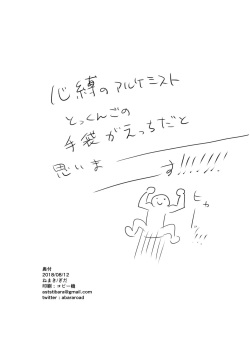 心縛のアルケミスト
とっくんごの
手袋がえっちだと
思いま
す!!!!!!!
ヒャー
奥付
2018/08/12
ねまき/ぎだ
印刷：コピー機
astetibara@gmail.com
twitter：abararoad